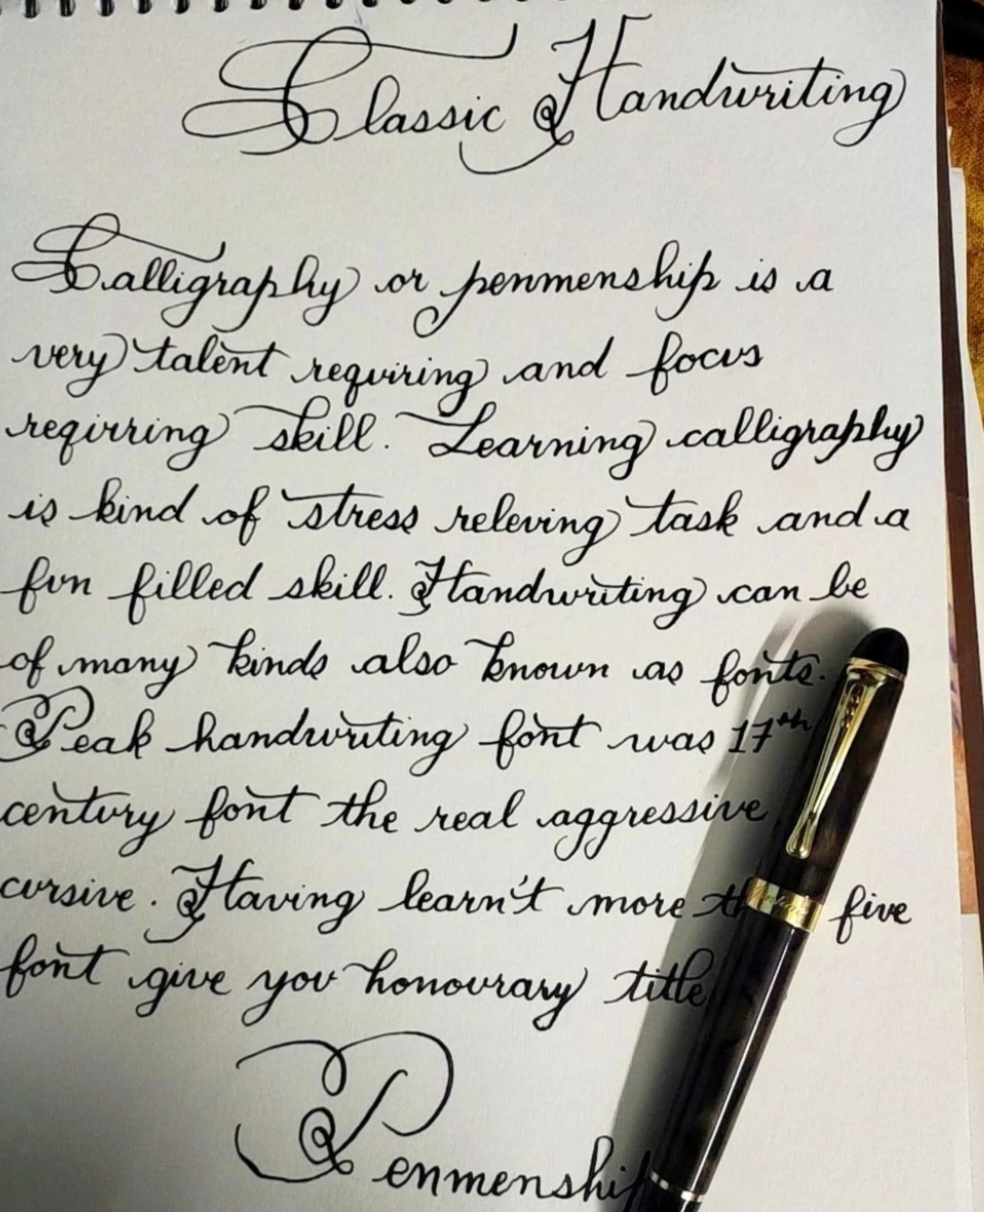 Classic Handwriting
Calligraphy or penmenship is a
very talent requiring and focus
reqirring skill. Learning calligraphy
is kind of stress releving task and a
fun filled skill. Handwriting can be
of many kinds also known as fonts.
Peak handwriting font was 17th
century font the real aggressive
cursive. Having learn't more five
font give you honourary title